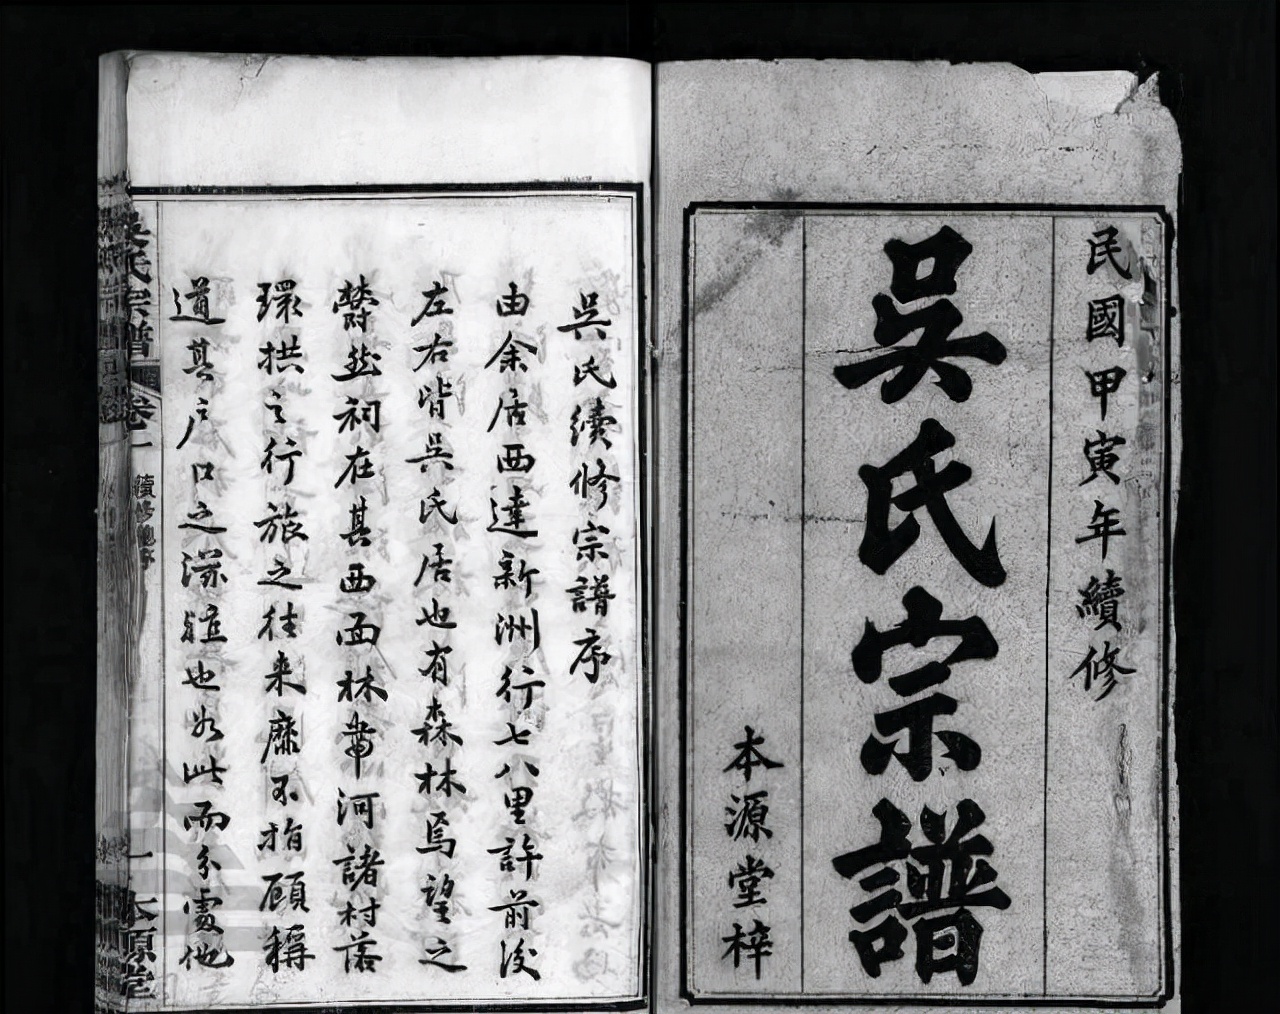 民國甲寅年續修
吳氏宗譜
本源堂梓
吳氏續修宗譜序
由余居西達新洲行七八里許前後
左右皆吳氏居也有森林焉望之
鬱然祠在其西面林帶河諸村落
環拱之行旅之往来靡不指顧稱
道其户口之滋殖也如此而分處他
吳氏宗譜
卷一
續修譜序
一
本源堂